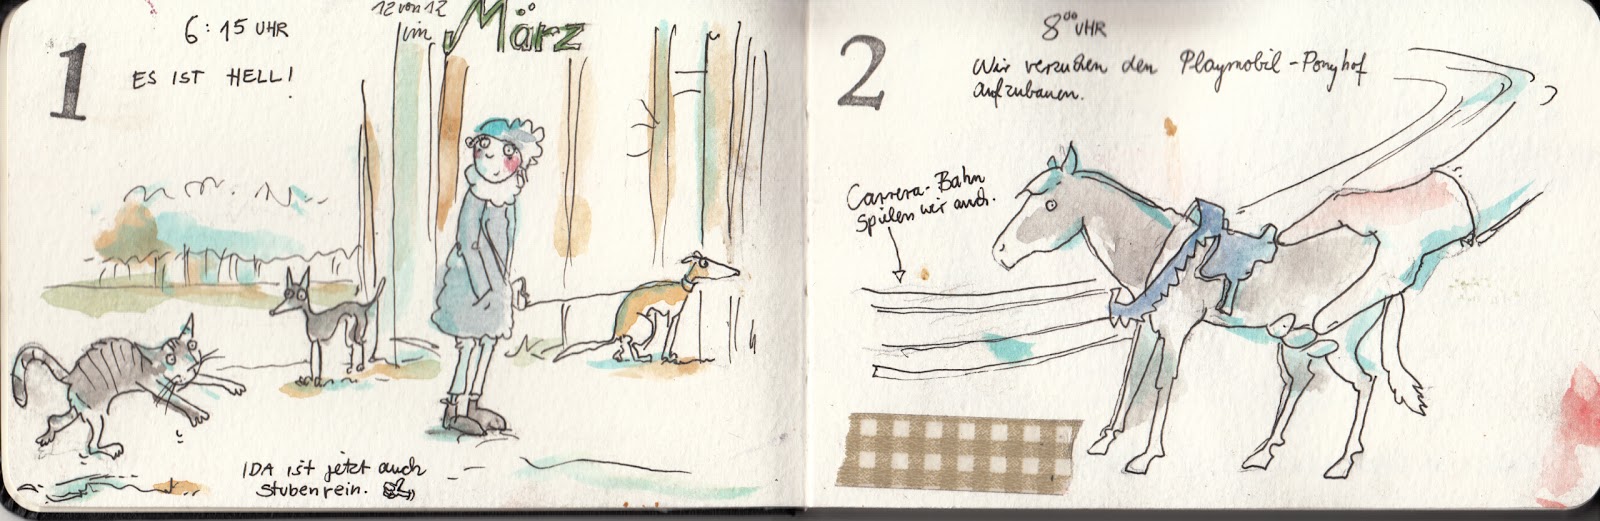 1
6:15 UHR
ES IST HELL!
12 von 12
im März
IDA ist jetzt auch
stubenrein.
2
8⁰⁰ UHR
Wir versuchen den Playmobil-Ponyhof
aufzubauen.
Carrera-Bahn
spielen wir auch.